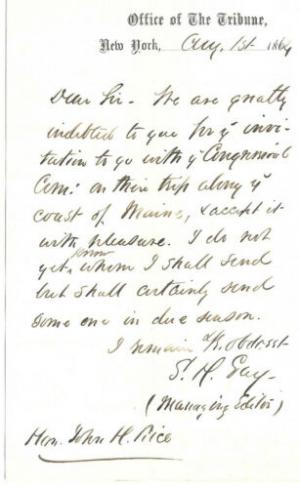 Office of The Tribune,
New York, Aug. 1st 1864
Dear Sir - We are greatly
indebted to you for yr invi-
tation to go with ye Congressional
Com: on their trip along ye
coast of Maine, & accept it
with pleasure. I do not
yet know whom I shall send
but shall certainly send
some one in due season.
I remain Yr. obdt. servt
S. H. Gay -
(Managing Editor)
Hon. John H. Rice